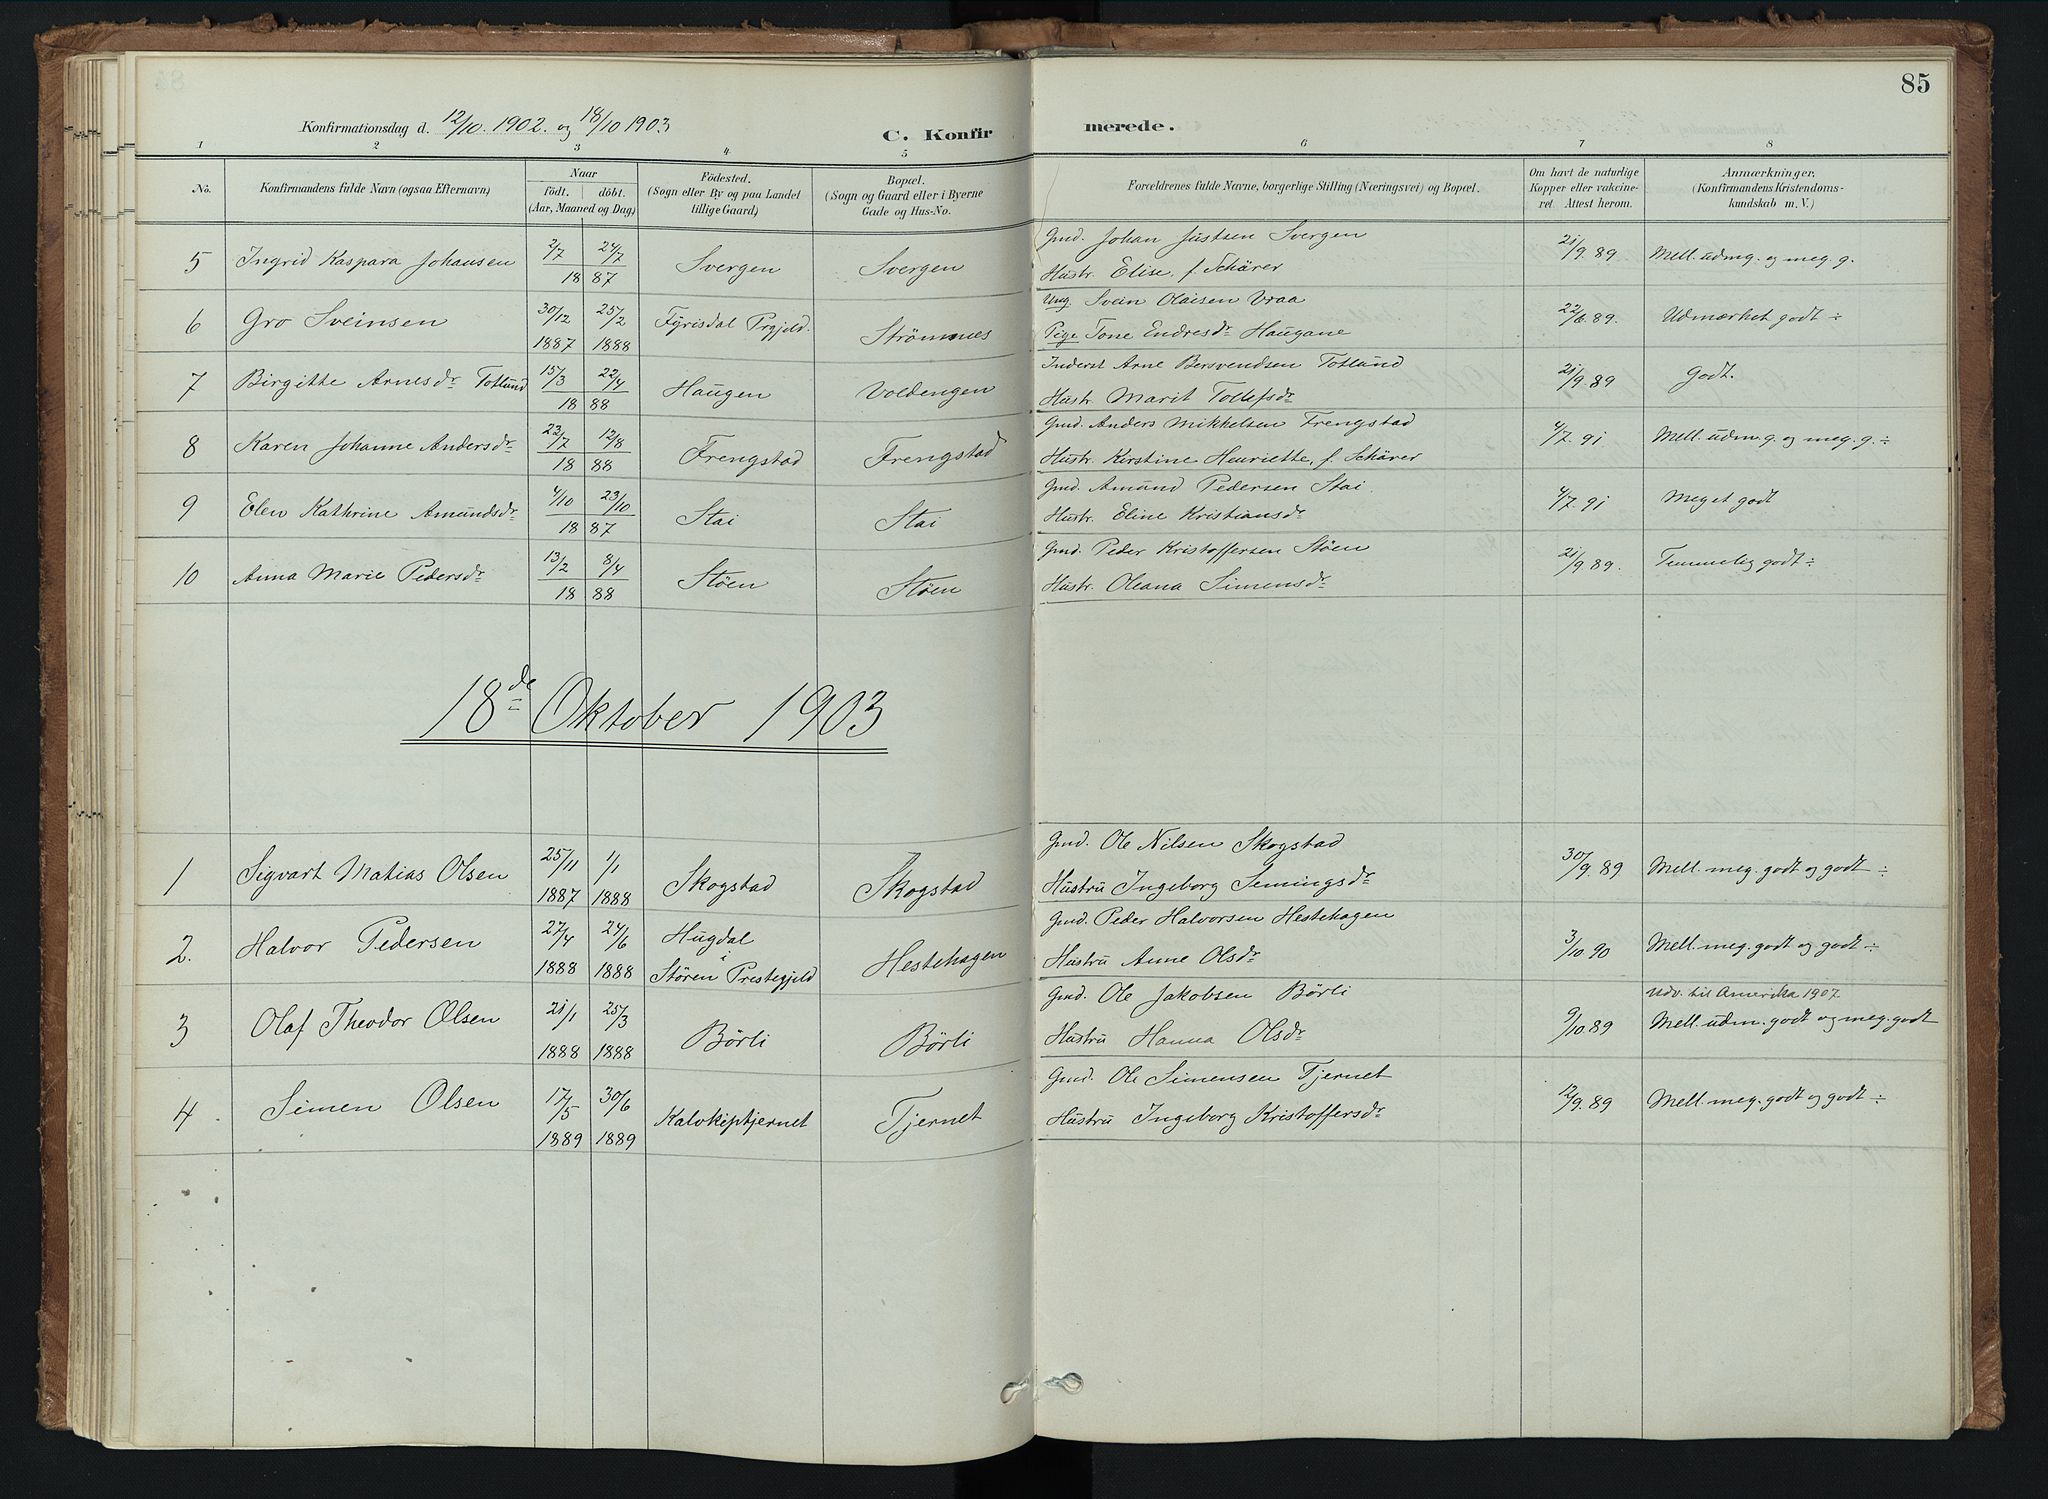 85
Konfirmationsdag d. 12/10. 1902. og 18/10 1903
C. Konfir merede.
1 2 3 4 5 6 7 8
No.
Konfirmandens fulde Navn (ogsaa Efternavn)
Naar
födt. döbt.
(Aar, Maaned og Dag)
Födested.
(Sogn eller By og paa Landet
tillige Gaard)
Bopæl.
(Sogn og Gaard eller i Byerne
Gade og Hus-No.
Forældrenes fulde Navne, borgerlige Stilling (Næringsvei) og Bopæl.
Om havt de naturlige
Kopper eller vakcine-
ret. Attest herom.
Anmærkninger.
(Konfirmandens Kristendoms-
kundskab m. V.)
5 Ingrid Kaspara Johansen 2/7 24/7 1887 Svergen Svergen
Gmd. Johan Justsen Svergen
Hustr. Elise, f. Schärer
21/9. 89 Mell. udm. g. og meg. g.
6 Gro Sveinsen 30/12 1887 25/2 1888 Fyrisdal Prgjeld. Strömnes
Ung. Svein Olaisen Vraa
Pige Tone Endresdr Haugane
22/6. 89. Udmærket godt ÷
7 Birgitte Arnesdr Totlund 15/3 22/4 1888 Haugen Voldengen
Inderst Arne Bersvendsen Totlund
Hustr. Marit Tollefsdr
21/9. 89 Godt.
8 Karen Johanne Andersdr 23/7 12/8 1888 Frengstad Frengstad
Gmd. Anders Mikkelsen Frengstad
Hustr. Kirstine Henriette, f. Schärer
4/7. 91 Mell. udm. g. og meg. g. ÷
9 Elen Kathrine Amundsdr 4/10 23/10 1887 Stai Stai
Gmd. Amund Pedersen Stai.
Hustr. Eline Kristiansdr
4/7. 91 Meget godt
10 Anna Marie Pedersdr 13/2 8/4 1888 Stöen Stöen
Gmd. Peder Kristoffersen Stöen
Hustr. Oleana Simensdr
21/9. 89. Temmelig godt ÷
18de Oktober 1903
1 Sigvart Matias Olsen 25/11 1887 1/1 1888 Skogstad Skogstad
Gmd. Ole Nilsen Skogstad
Hustru Ingeborg Semingsdr
30/9. 89 Mell. meg. godt og godt ÷
2. Halvor Pedersen 27/4 1888 24/6 1888 Hugdal i Stören Prestegjeld Hestehagen
Gmd. Peder Halvorsen Hestehagen
Hustru Anne Olsdr
3/10. 90 Mell. meg. godt og godt ÷
3 Olaf Theodor Olsen 21/1 1888 25/3 1888 Börli Börli
Gmd. Ole Jakobsen Börli
Hustru Hanna Olsdr
9/10. 89 Udv. til Amerika 1907
Mell. udm. godt og meg. godt
4 Simen Olsen 17/5 1889 30/6 1889 Kalvkiptjernet Tjernet
Gmd. Ole Simensen Tjernet
Hustru Ingeborg Kristoffersdr
12/9. 89 Mell. meg. godt og godt ÷